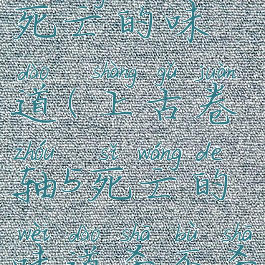 死亡的味
dào shàng gǔ juàn
道(上古卷
zhóu sǐ wáng de
轴5死亡的
wèi dào shā bù shā